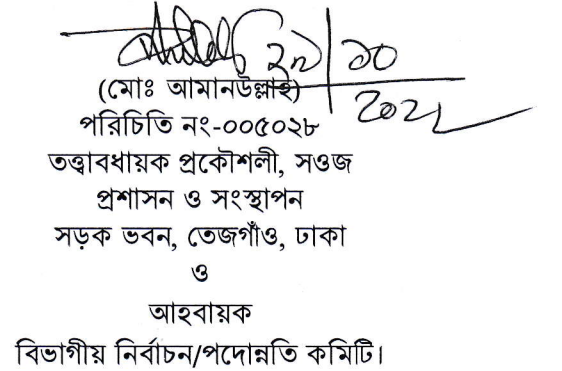 ২৯/১০
২০২২
(মোঃ আমানউল্লাহ)
পরিচিতি নং-০০৫০২৮
তত্ত্বাবধায়ক প্রকৌশলী, সওজ
প্রশাসন ও সংস্থাপন
সড়ক ভবন, তেজগাঁও, ঢাকা
ও
আহবায়ক
বিভাগীয় নির্বাচন/পদোন্নতি কমিটি।